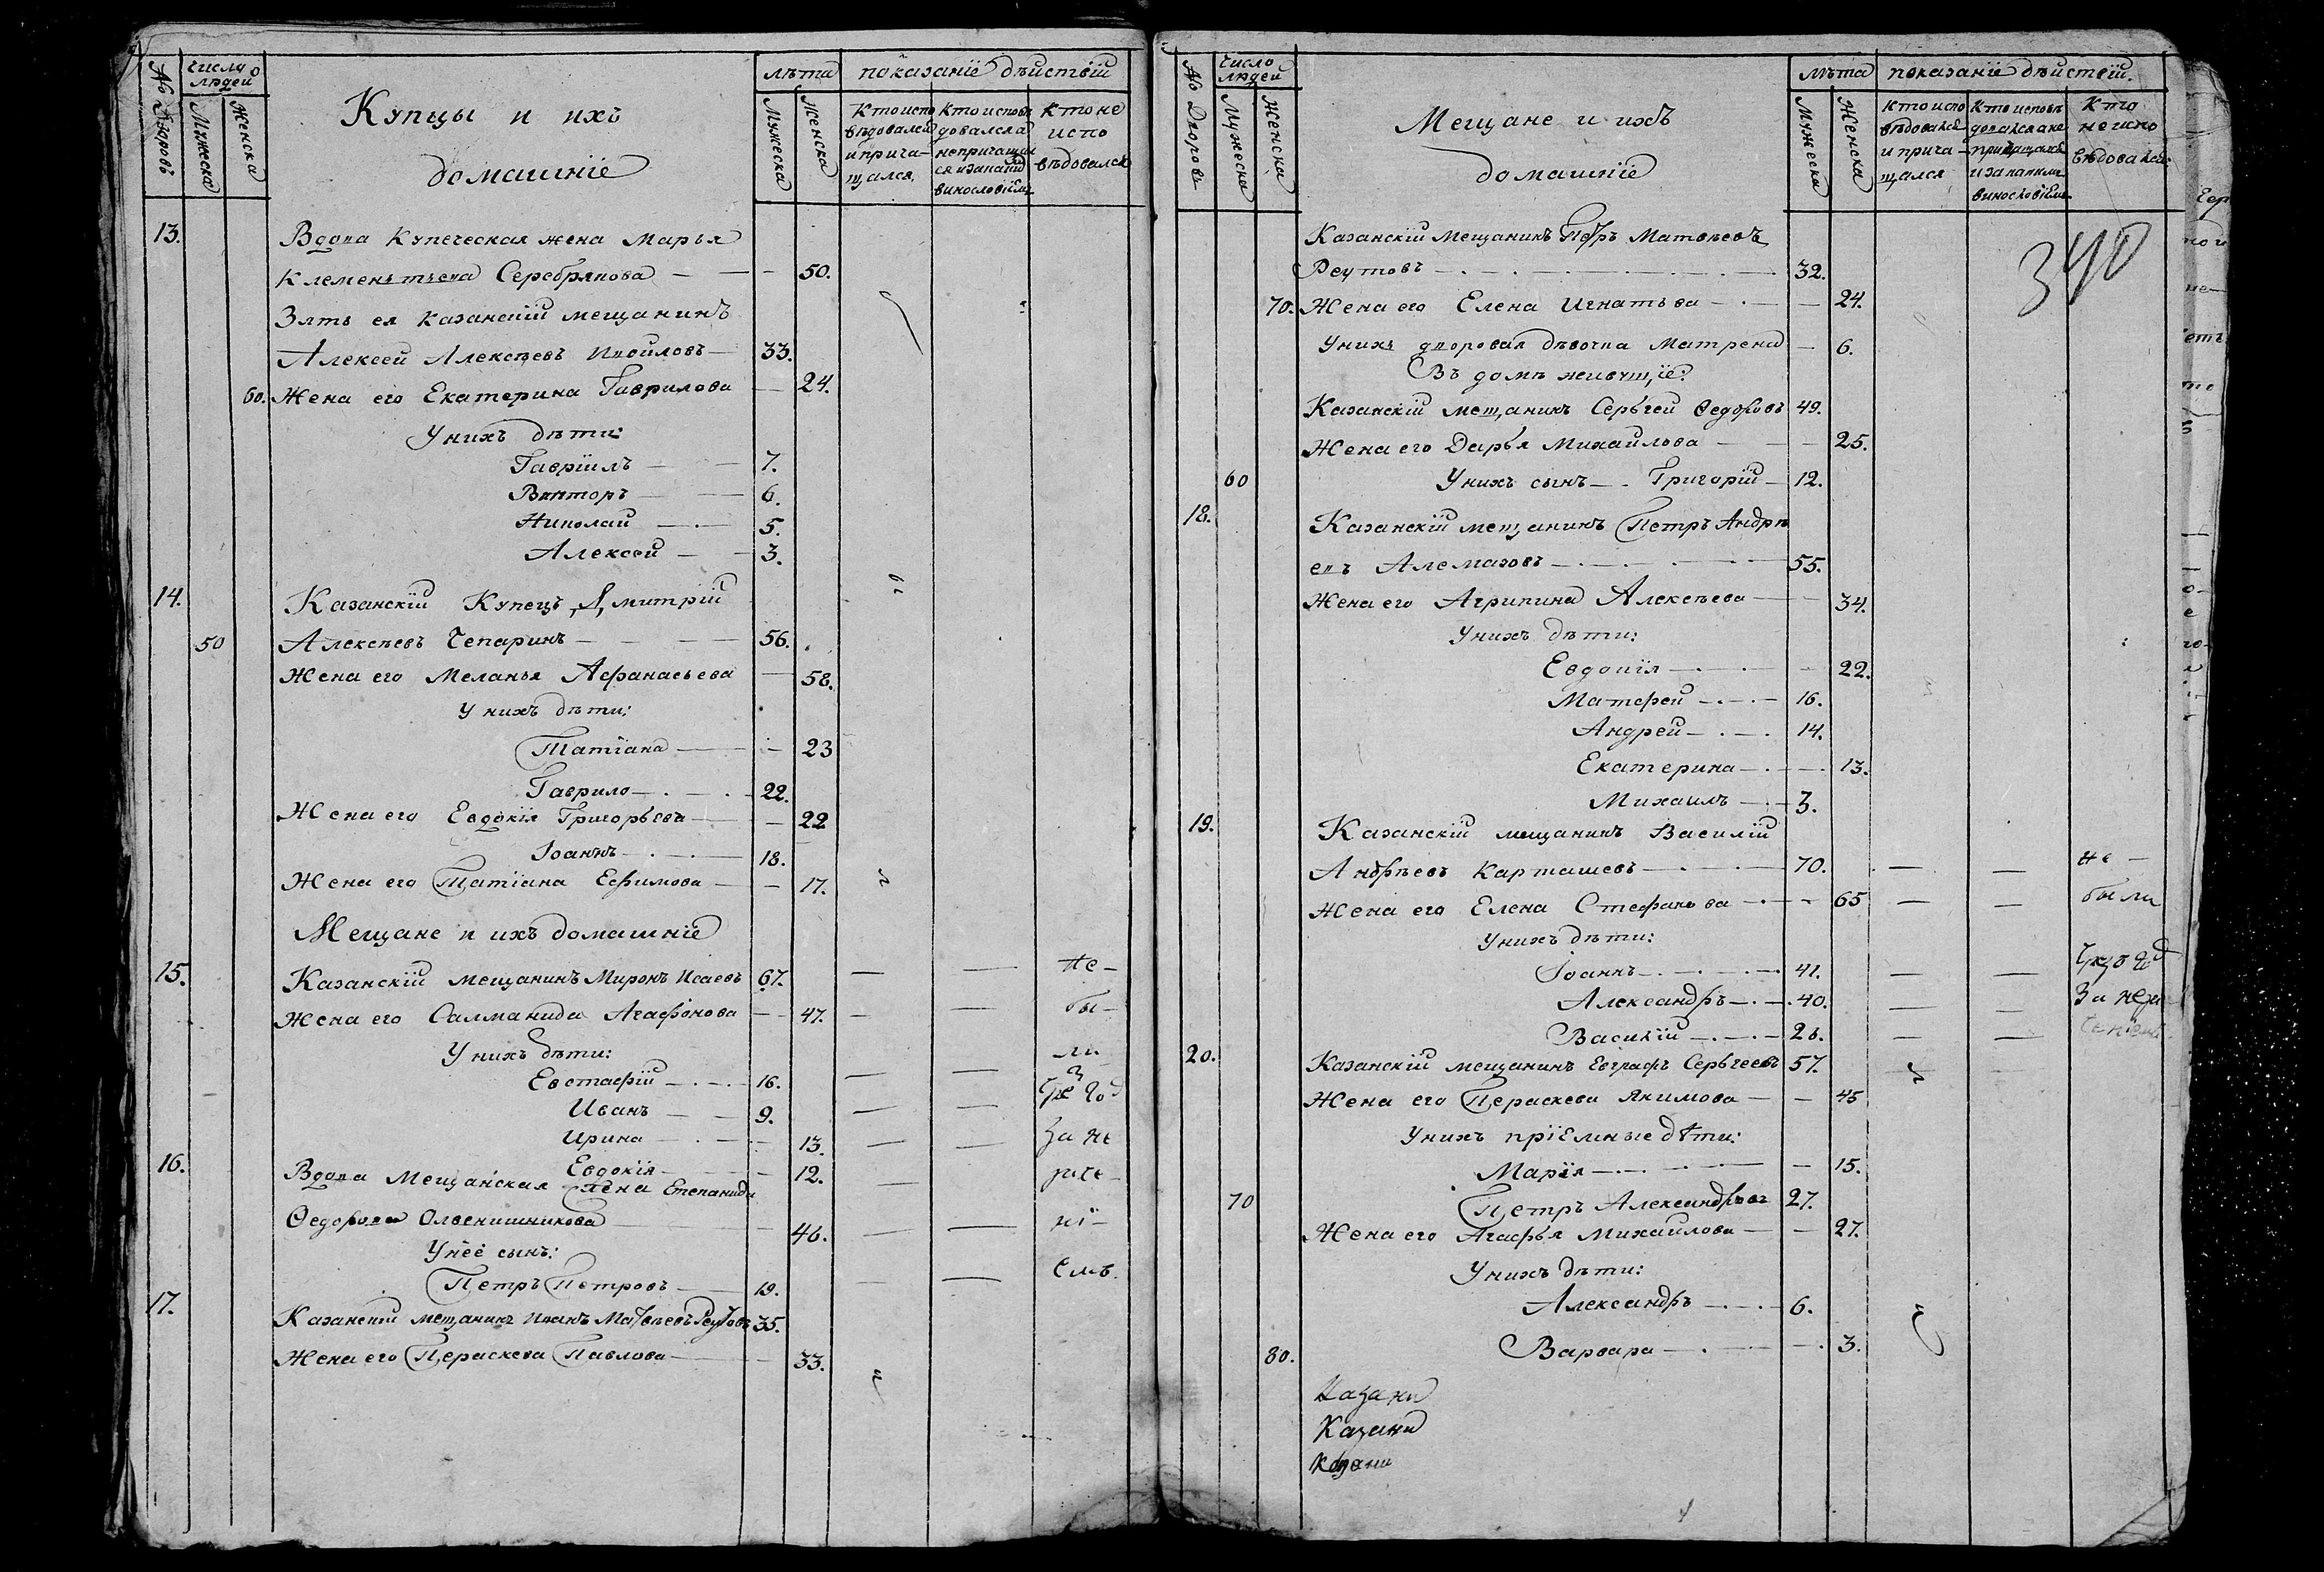 № Дворовъ
Число людей
Мужеска
Женска
Купцы и ихъ
домашніе
лѣта
Мужеска
Женска
показаніе дѣйствій
Кто испо
вѣдовалсѧ
и прича-
щался
Кто исповѣ
довался а
не причащал
ся и за каким
винословіем
Кто не
испо
вѣдовался
13.
Вдова Купеческая жена Марья
Клементьева Серебрякова — — — 50.
Зять ея казанскій мещанинъ
Алексей Алексѣевъ — 33.
60. Жена его Екатерина Гаврилова — 24.
У нихъ дѣти:
Гавріилъ — — 7.
Викторъ — — 6.
Николай — — 5.
Алексей — — 3.
14. Казанскій Купецъ Дмитрій
50 Алексѣевъ Чепаринъ — — — 56.
Жена его Меланья Афанасьева — 58.
У нихъ дѣти:
Татіана — — 23
Гаврило — — 22.
Жена его Евдокія Григорьева — — 22
Іоаннъ — — 18.
Жена его Татіана Ефимова — — 17.
Мещане и ихъ домашніе
15. Казанскій мещанинъ Миронъ Исаевъ 67. — — не —
Жена его Саламанида Агафонова — — 47. — — бы —
У нихъ дѣти: ли
Евстафій — — 16. — —
Иванъ — — 9. — —
Ирина — — 13. — — за не
Евдокія — — 12. —
16. Вдова Мещанская жена Степанида
Ѳедорова — — 46. — — ні —
У неё сынъ: емъ.
Петръ Петровъ — 19. — —
17. Казанскій мещанинъ Иванъ Матвѣевъ Реутовъ 35.
Жена его Параскева Павлова — — 33.
№ Дворовъ
Число людей
Мужеска
Женска
Мещане и ихъ
домашніе
лѣта
Мужеска
Женска
показаніе дѣйствій.
Кто испо
вѣдовался
и прича —
щался
Кто исповѣ
довался а не
причащался
и за каким
винословіем
Кто
не испо
вѣдовался
340
Казанскій Мещанинъ Петръ Матвѣевъ
Реутовъ — — — 32.
70. Жена его Елена Игнатьва — — 24.
У нихъ дворовая дѣвочка Матрена — 6.
Въ домѣ живущіе:
Казанскій мещанинъ Сергей Ѳедоровъ 49.
Жена его Дарья Михаилова — — 25.
60 У нихъ сынъ — Григорій — 12.
18. Казанскій мещанинъ Петръ Андрѣ
евъ Алемазовъ — — — 55.
Жена его Агрипина Алексѣева — — 34.
У нихъ дѣти:
Евдокія — — 22.
Матфей — — 16.
Андрей — — 14.
Екатерина — — 13.
Михаилъ — — 3.
19. Казанскій мещанинъ Василій
Андрѣевъ Карташевъ — — 70. — — не —
Жена его Елена Стефанова — — 65 — — были
У нихъ дѣти:
Іоаннъ — — 41. — —
Александръ — — 40. — —
Василій — — 26. — —
20. Казанскій мещанинъ Евграфъ Сергеевъ 57.
Жена его Параскева Якимова — — 45
У нихъ пріемные дѣти:
Марія — — 15.
70 Петръ Александровъ 27.
Жена его Агафья Михаилова — — 27.
У нихъ дѣти:
Александръ — — 6.
80. Варвара — — 3.
Казани
Казани
Казани